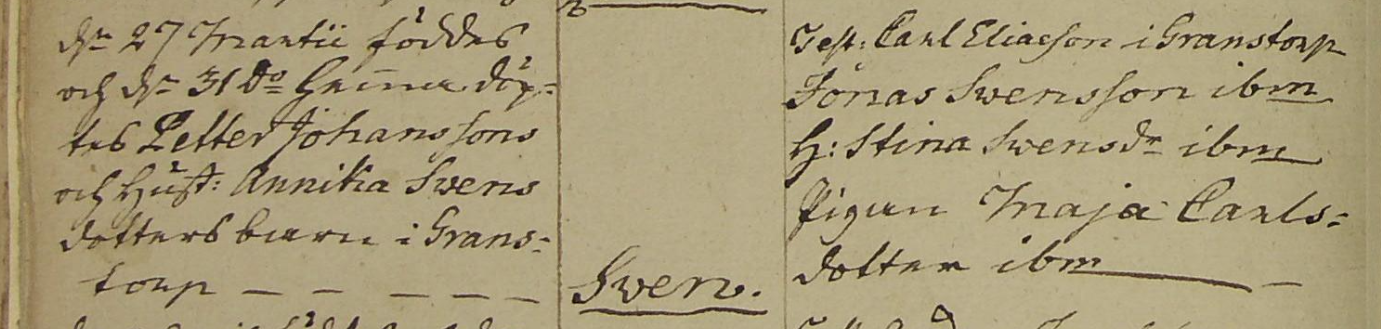 dn 27 Martii föddes
och dn 31 do hemma döp=
tes Petter Johanssons
och Hust: Annika Svens
dotters barn i Grans=
torp — — — — —
Sven.
Test: Carl Eliaeson i Granstorp
Jonas Svensson ibm
H: Stina Svensdr ibm
Pigan Maja Carls=
dotter ibm